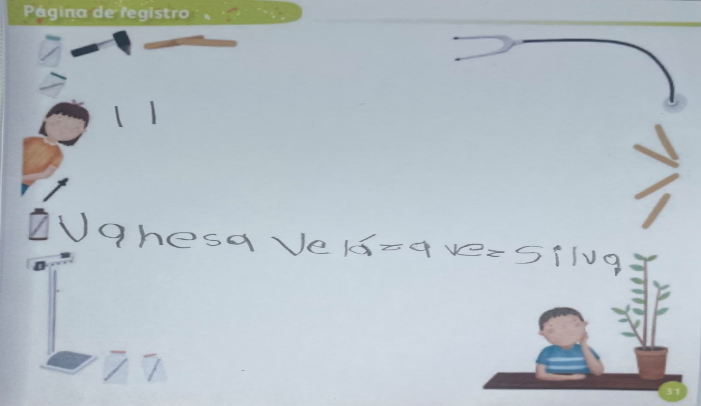 Página de registro
11
Vanesa Velázquez Silva
31